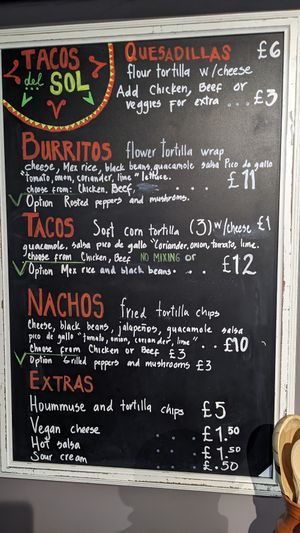 TACOS
del
SOL
QUESADILLAS £6
flour tortilla w/cheese
Add Chicken, Beef or
veggies for extra ... £3
BURRITOS flower tortilla wrap
cheese, Mex rice, black beans, guacamole salsa Pico de gallo
"tomato, onion, coriander, lime" lettuce.
choose from: Chicken, Beef, .... £11
√ Option Rosted peppers and mushrooms.
TACOS Soft corn tortilla (3) w/cheese £1
guacamole, salsa pico de gallo "coriander, onion, tomato, lime.
choose from Chicken, Beef NO MIXING or
√ Option Mex rice and black beans... £12
NACHOS fried tortilla chips
Cheese, black beans, jalapeños, guacamole salsa
pico de gallo "tomato, onion, coriander, lime" ... £10
Choose from Chicken or Beef £3
√ Option Grilled peppers and mushrooms £3
EXTRAS
Hoummuse and tortilla chips £5
Vegan cheese .... £1.50
Hot salsa .... £1.50
Sour cream .... £.50